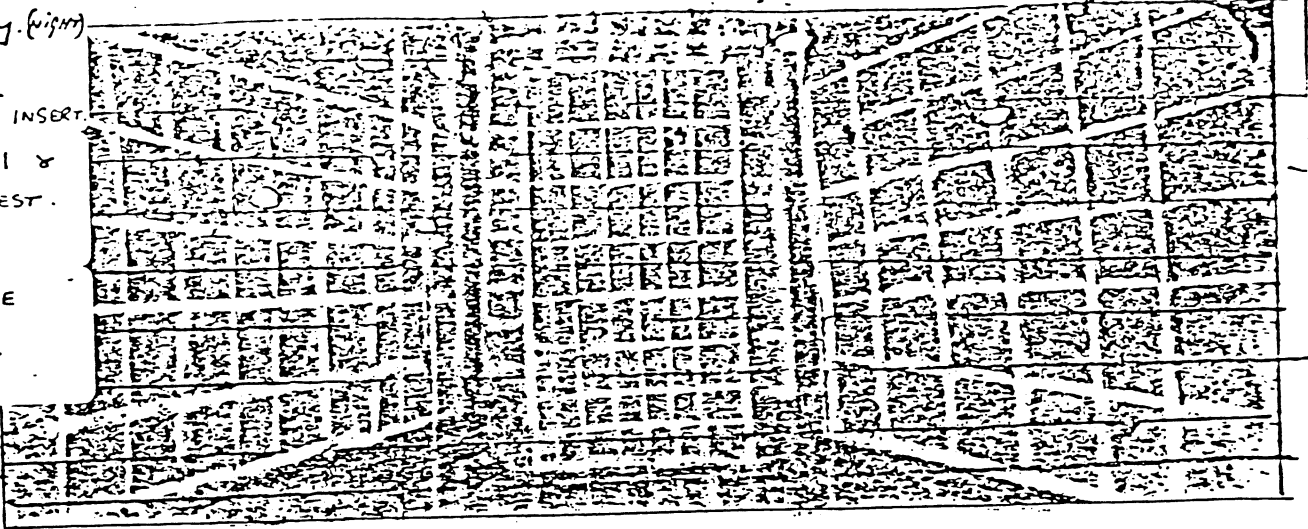 (NIGHT)
INSERT.
1 &
EST.
E